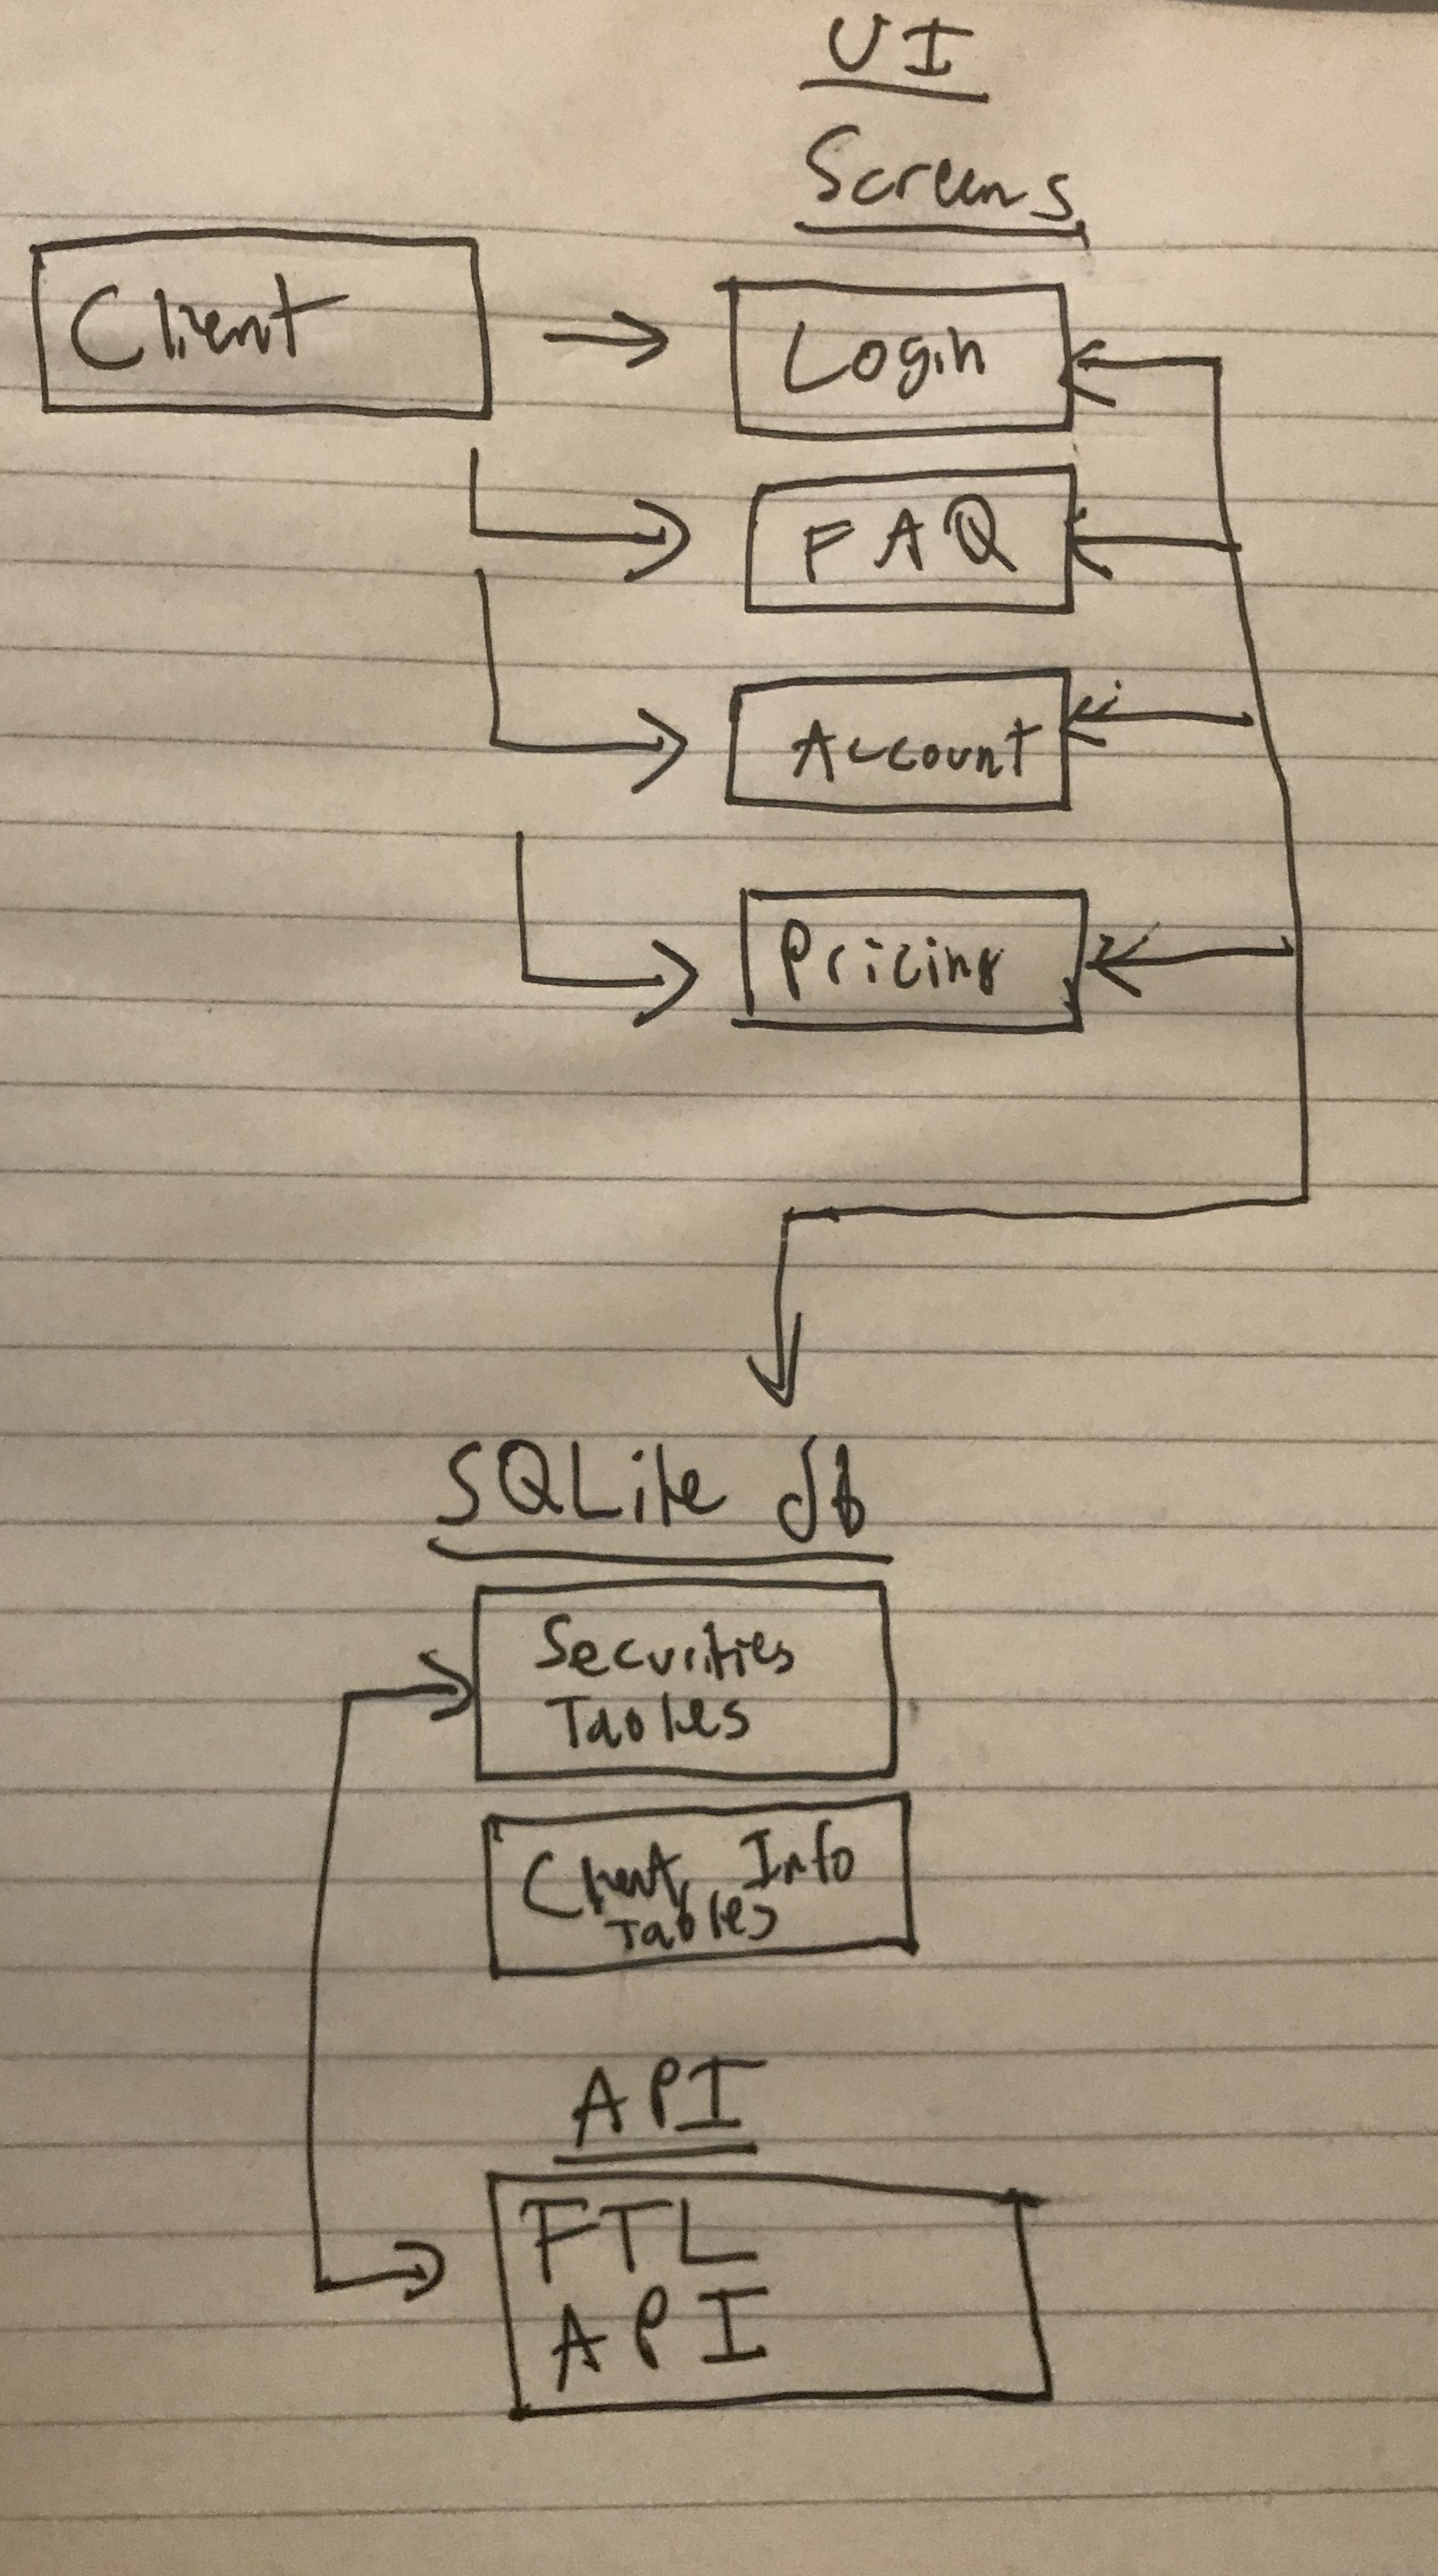 UI
Screens
Client
Login
FAQ
Account
Pricing
SQLite db
Securities
Tables
Client Info
Tables
API
FTL
API